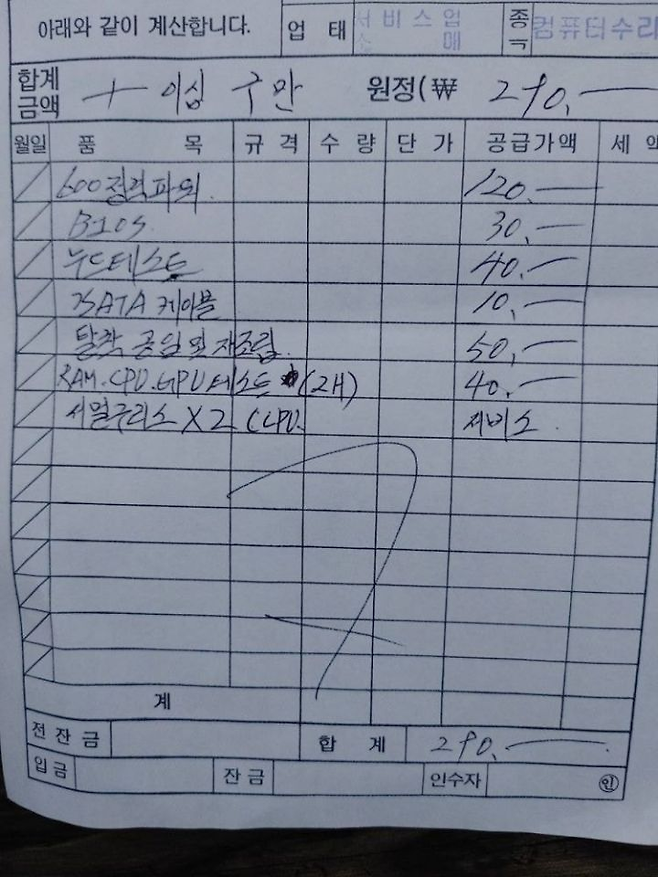 아래와 같이 계산합니다. 업 태 서비스업 소 매 종 컴퓨터수리
합계 금액 이십 구만 원정(₩ 290,—
월일 품 목 규격 수량 단가 공급가액 세
600 정격파워 120,—
BIOS 30,—
누드테스트 40,—
SATA 케이블 10,—
탈착 공임 및 재조립. 50,—
RAM.CPU.GPU 테스트 (2H) 40,—
써멀구리스 X2 (CPU. 써비스
계
전잔금 합 계 290,—
입금 잔금 인수자 ㊞